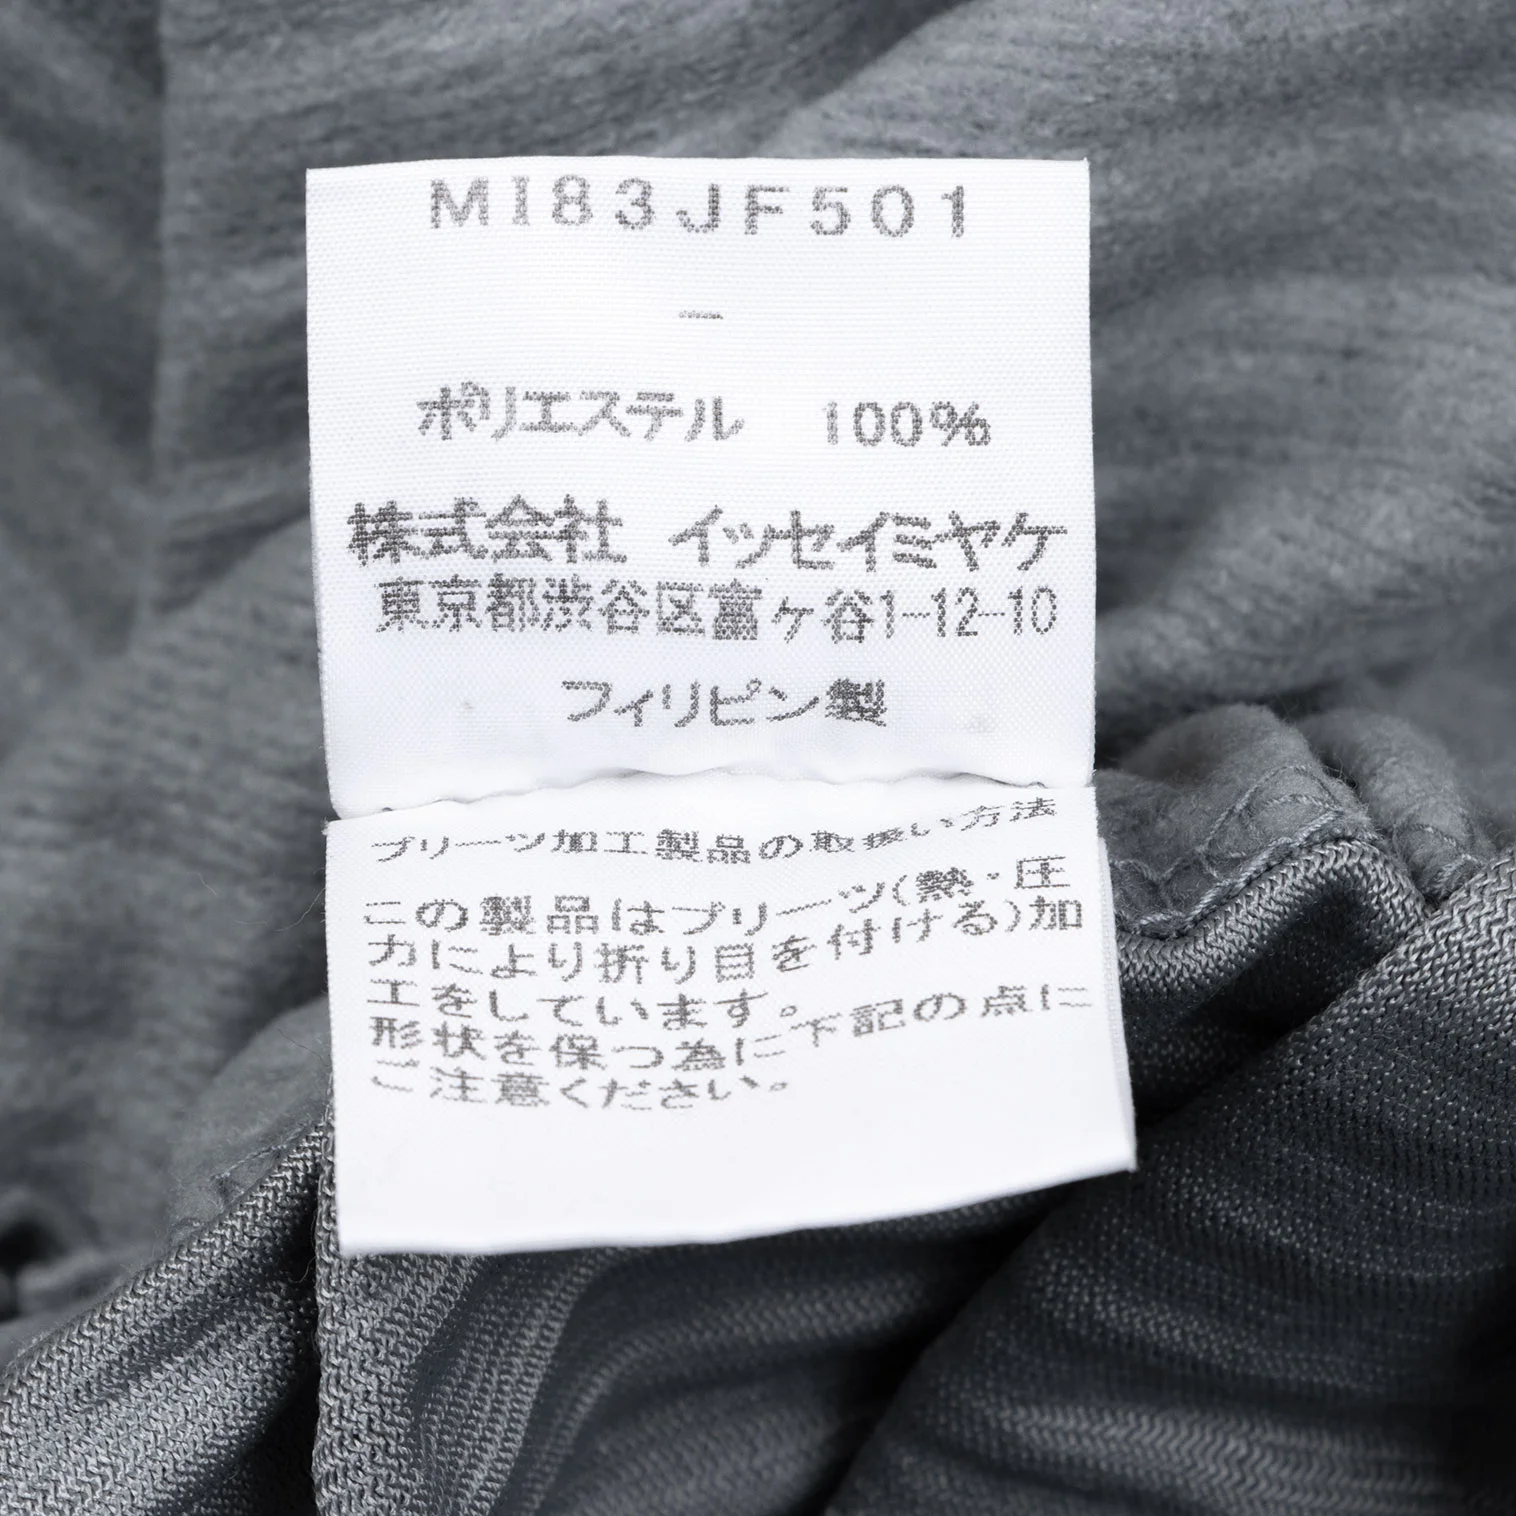 MI83JF501
—
ポリエステル 100%
株式会社 イッセイミヤケ
東京都渋谷区富ヶ谷1-12-10
フィリピン製
プリーツ加工製品の取扱い方法
この製品はプリーツ(熱・圧
力により折り目を付ける)加
工をしています。
形状を保つ為に下記の点に
ご注意ください。